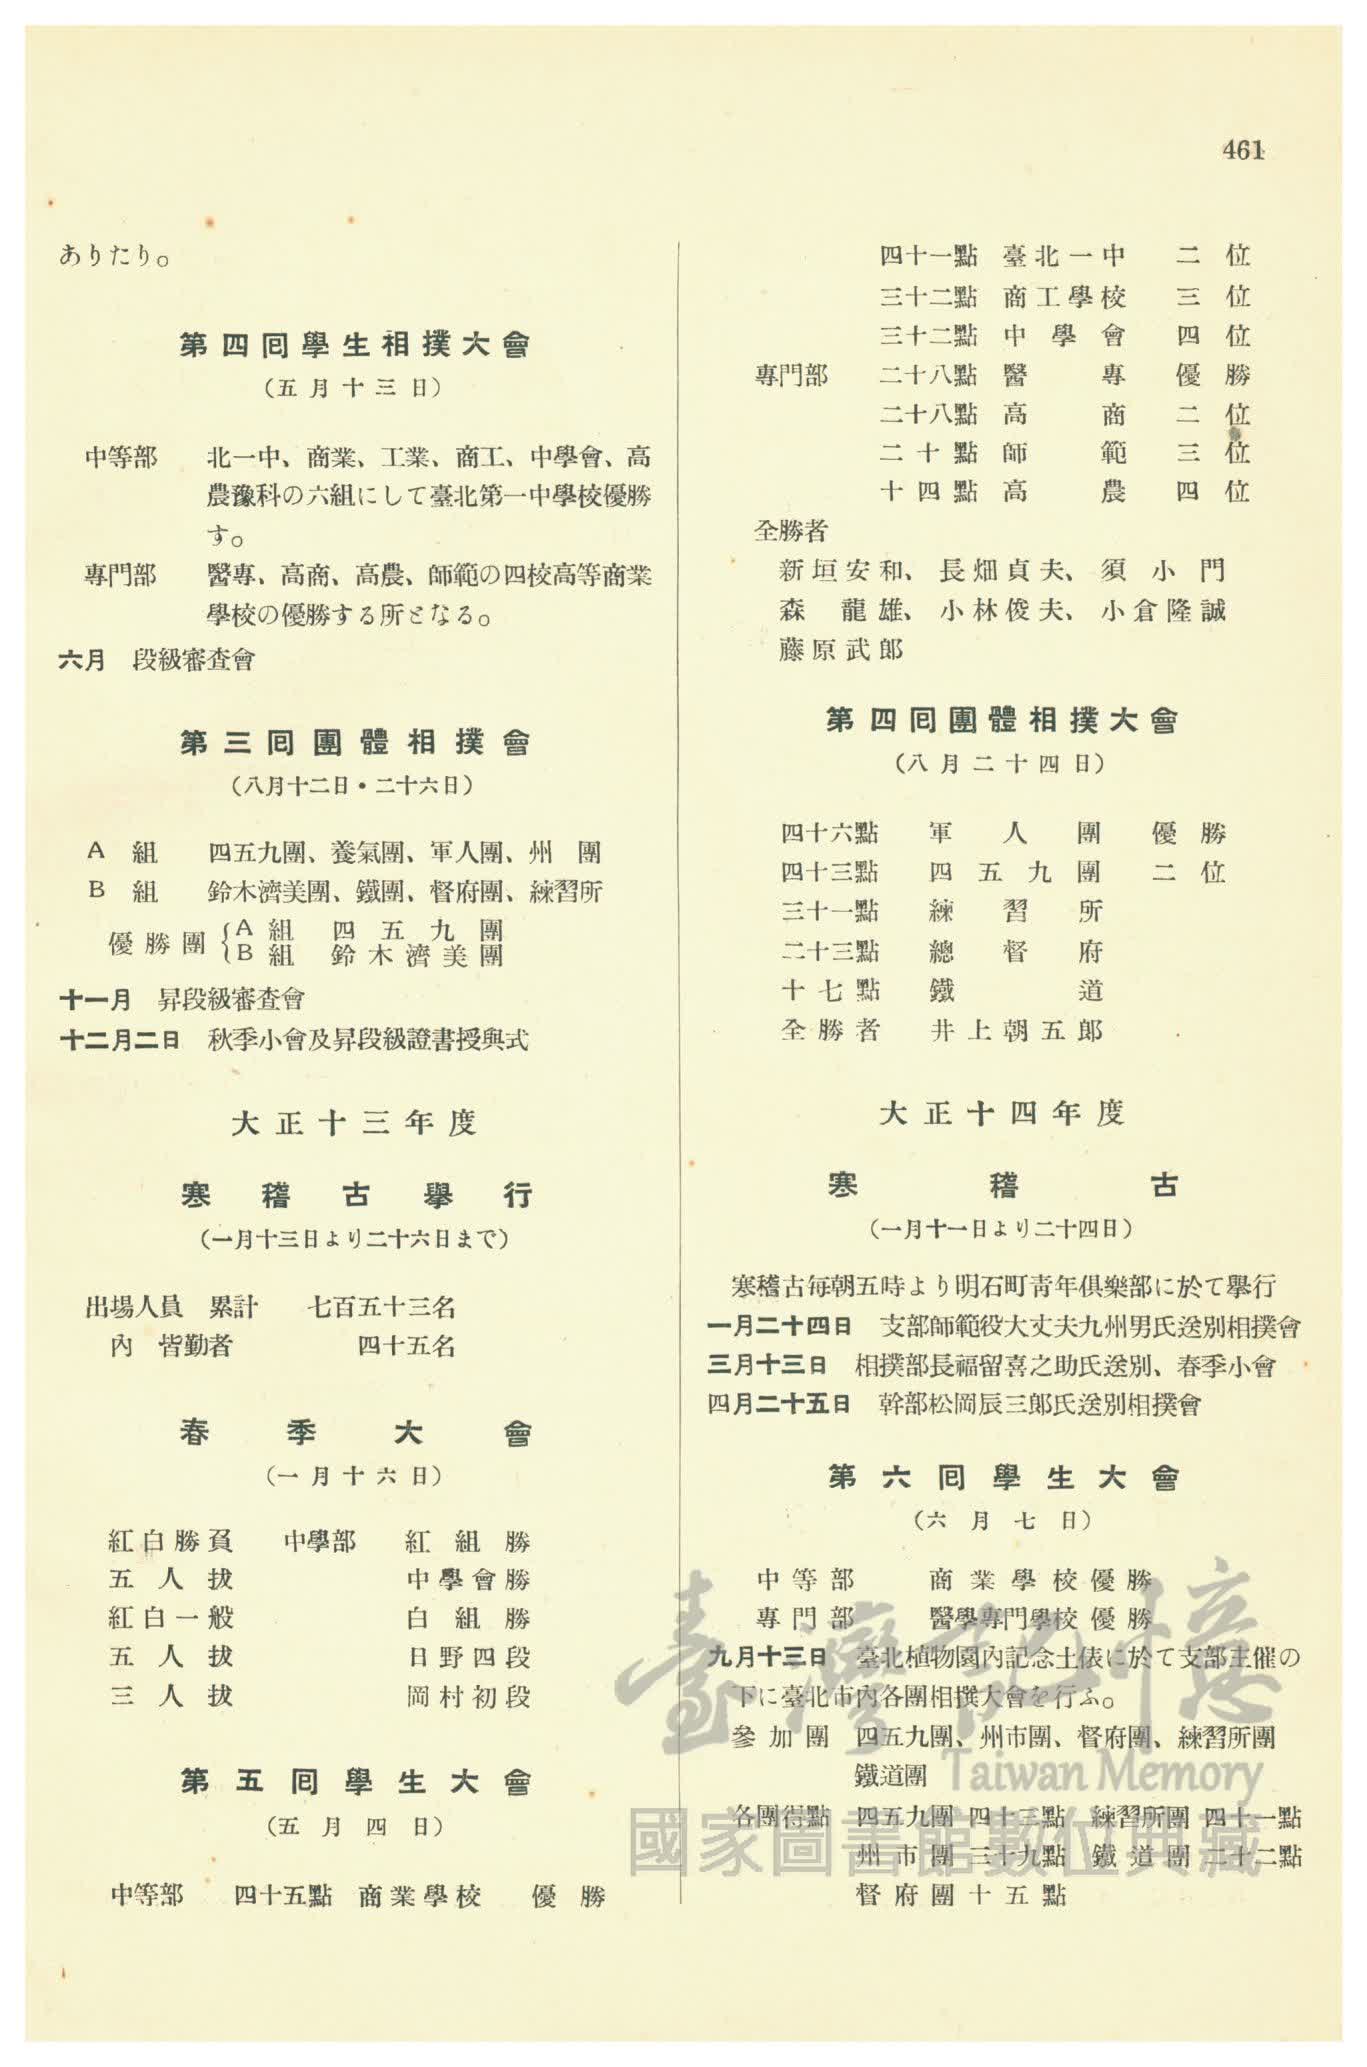 461
ありたり。
第四囘學生相撲大會
(五月十三日)
中等部 北一中、商業、工業、商工、中學會、高
農豫科の六組にして臺北第一中學校優勝
す。
專門部 醫專、高商、高農、師範の四校高等商業
學校の優勝する所となる。
六月 段級審査會
第三囘團體相撲會
(八月十二日・二十六日)
A組 四五九團、養氣團、軍人團、州團
B組 鈴木濟美團、鐵團、督府團、練習所
優勝團{A組 四五九團
B組 鈴木濟美團
十一月 昇段級審査會
十二月二日 秋季小會及昇段級證書授與式
大正十三年度
寒稽古擧行
(一月十三日より二十六日まで)
出場人員 累計 七百五十三名
內 皆勤者 四十五名
春季大會
(一月十六日)
紅白勝負 中學部 紅組勝
五人拔 中學會勝
紅白一般 白組勝
五人拔 日野四段
三人拔 岡村初段
第五囘學生大會
(五月四日)
中等部 四十五點 商業學校 優勝
四十一點 臺北一中 二位
三十二點 商工學校 三位
三十二點 中學會 四位
專門部 二十八點 醫專 優勝
二十八點 高商 二位
二十點 師範 三位
十四點 高農 四位
全勝者
新垣安和、長畑貞夫、須小門
森龍雄、小林俊夫、小倉隆誠
藤原武郎
第四囘團體相撲大會
(八月二十四日)
四十六點 軍人團 優勝
四十三點 四五九團 二位
三十一點 練習所
二十三點 總督府
十七點 鐵道
全勝者 井上朝五郎
大正十四年度
寒稽古
(一月十一日より二十四日)
寒稽古每朝五時より明石町靑年俱樂部に於て擧行
一月二十四日 支部師範役大丈夫九州男氏送別相撲會
三月十三日 相撲部長福留喜之助氏送別、春季小會
四月二十五日 幹部松岡辰三郎氏送別相撲會
第六囘學生大會
(六月七日)
中等部 商業學校優勝
專門部 醫學專門學校優勝
九月十三日 臺北植物園內記念土俵に於て支部主催の
下に臺北市內各團相撲大會を行ふ。
參加團 四五九團、州市團、督府團、練習所團
鐵道團
各團得點 四五九團 四十三點 練習所團 四十一點
州市團 三十九點 鐵道團 二十二點
督府團 十五點
臺灣記憶
Taiwan Memory
國家圖書館數位典藏